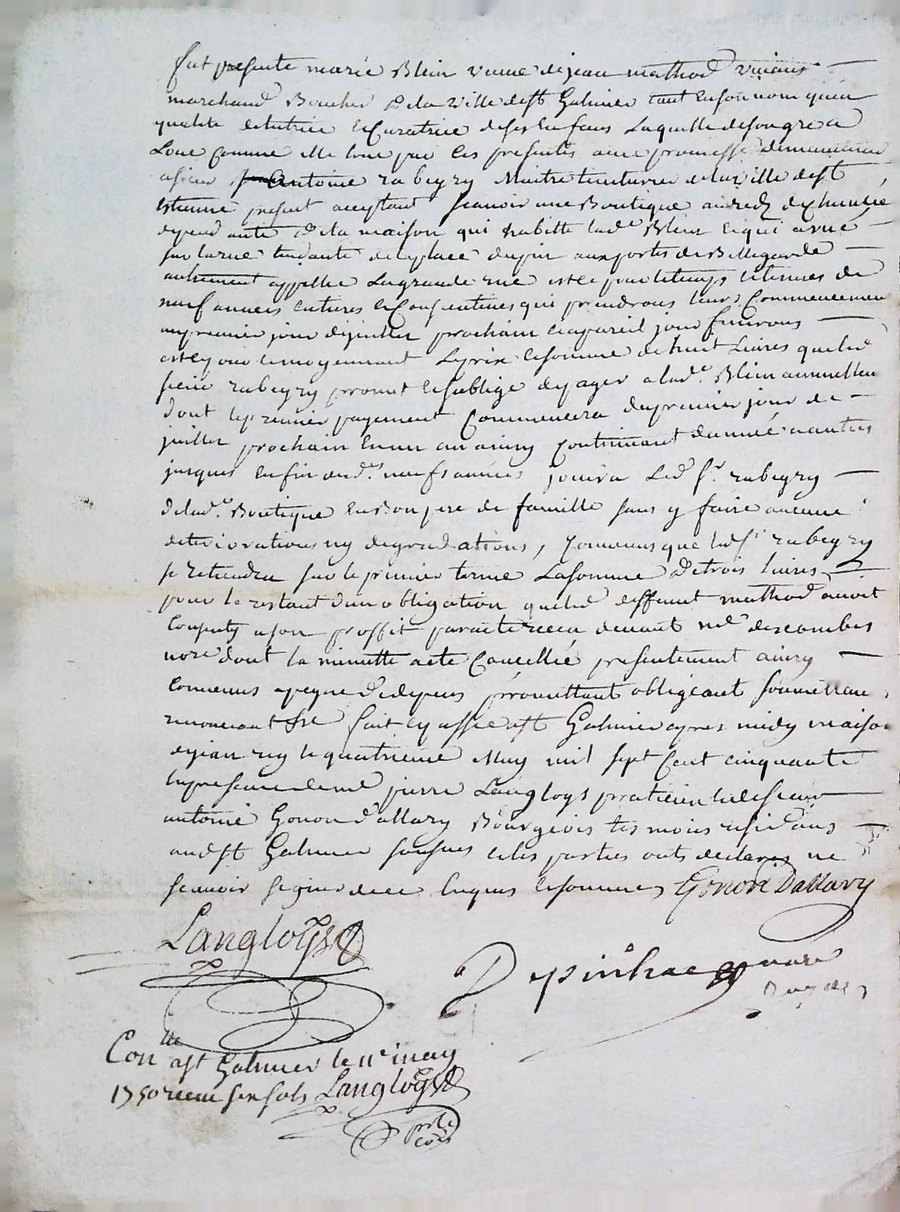 fut presente marie Blein veuve de jean mathod vivant
marchand Boucher de la ville de st Galmier tant en son nom quen
qualité de tutrice et Curatrice de ses Enfans Laquelle de son gré a
Loué Comme elle loue par les presentes avec promesse de maintenir
a sieur antoine rabeyry Maitre teinturier de la ville de st
Estienne present acceptant scavoir une Boutique au redz de chaussée
dependante de la maison qui habitte lad.e Blein et qui a vue
sur la rue tendante de la place aux portes de Bellegarde
autrement appellée La grande rue est ce pour le temps et termes de
neuf années entieres et Consecutives qui prendront leurs Commencement
au premier jour de juillet prochain et a pareil jour finiront
est ce pour et moyennant Le prix et somme de huit Livres que led
sieur rabeyry promet et soblige de payer a lad.e Blein annuellem
dont le premier payement Commencera du premier jour de
juillet prochain en un an ainsy Continuant dannée a autres
jusques en fin desd. neufs années jouira Led sr. rabeyry
de lad.e Boutique en Bon pere de famille sans y faire aucune
deteriorations ny degradations, Convenus que led sr rabeyry
se retiendra sur le premier terme La somme de trois livres
pour le restant dun obligation que led deffunt mathod avoit
Consenty a son proffit par acte receu devant me descombes
nore dont la minutte a ete Cancellée presentement ainsy
Convenus a peyne de depens promettant obligeant soumettan
renonceant &c fait et passé a st Galmier apres midy maison
de jean rey le quatrieme May mil sept Cent cinquante
En presence de me pierre Langloys praticien et de sieur
antoine Gonon dallary Bourgeois tesmoins residans
aud st Galmier soussignes et les parties ont declarés ne
scavoir signer de ce enquis et sommes Gonon Dallary
Langloys
Depinhac nore
Con lle a st Galmier le 11e may
1750 receu six sols Langloys